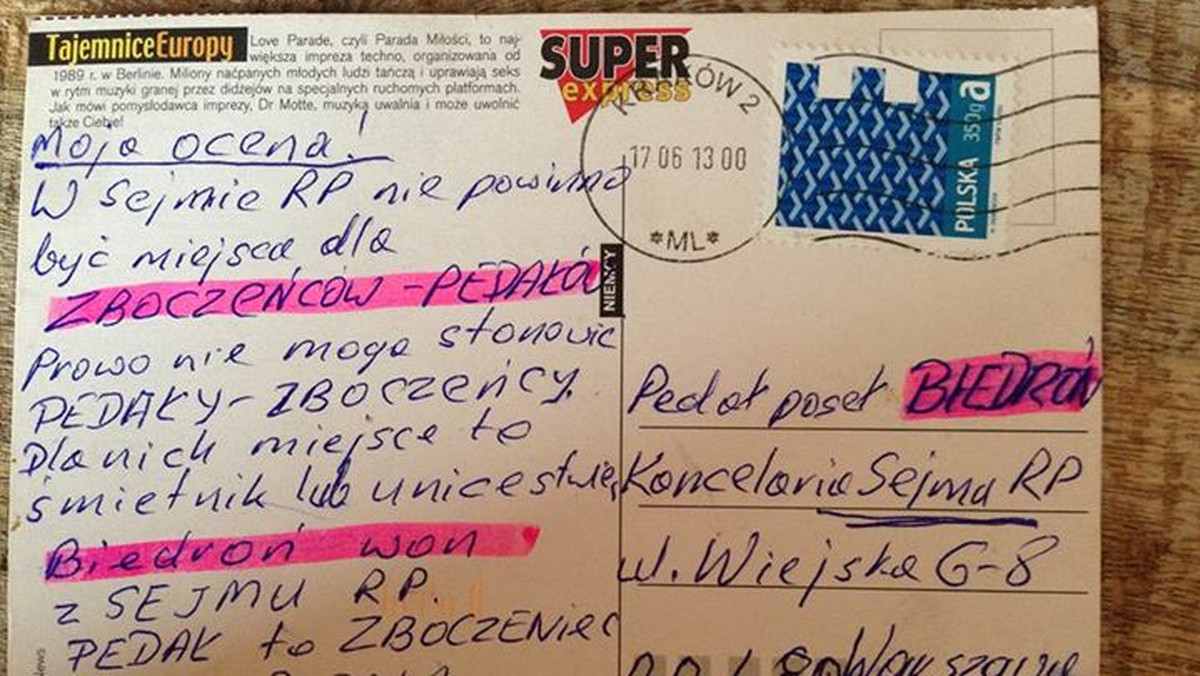 TajemniceEuropy Love Parade, czyli Parada Miłości, to naj-
większa impreza techno, organizowana od
1989 r. w Berlinie. Miliony naćpanych młodych ludzi tańczą i uprawiają seks
w rytm muzyki granej przez didżejów na specjalnych ruchomych platformach.
Jak mówi pomysłodawca imprezy, Dr Motte, muzyka uwalnia i może uwolnić
także Ciebie!
Moja ocena!
W Sejmie RP nie powinno
być miejsca dla
ZBOCZEŃCÓW - PEDAŁÓW
Prawo nie mogą stanowić
PEDAŁY - ZBOCZEŃCY.
Dla nich miejsce to
śmietnik lub
Biedroń won
z SEJMU RP.
PEDAŁ to ZBOCZENIEC
News
NIEMCY
SUPER
express
KRAKÓW 2
17 06 13 00
*ML*
POLSKA 350g a
Pedał poseł BIEDROŃ
Kancelaria Sejmu RP
ul. Wiejska 6-8